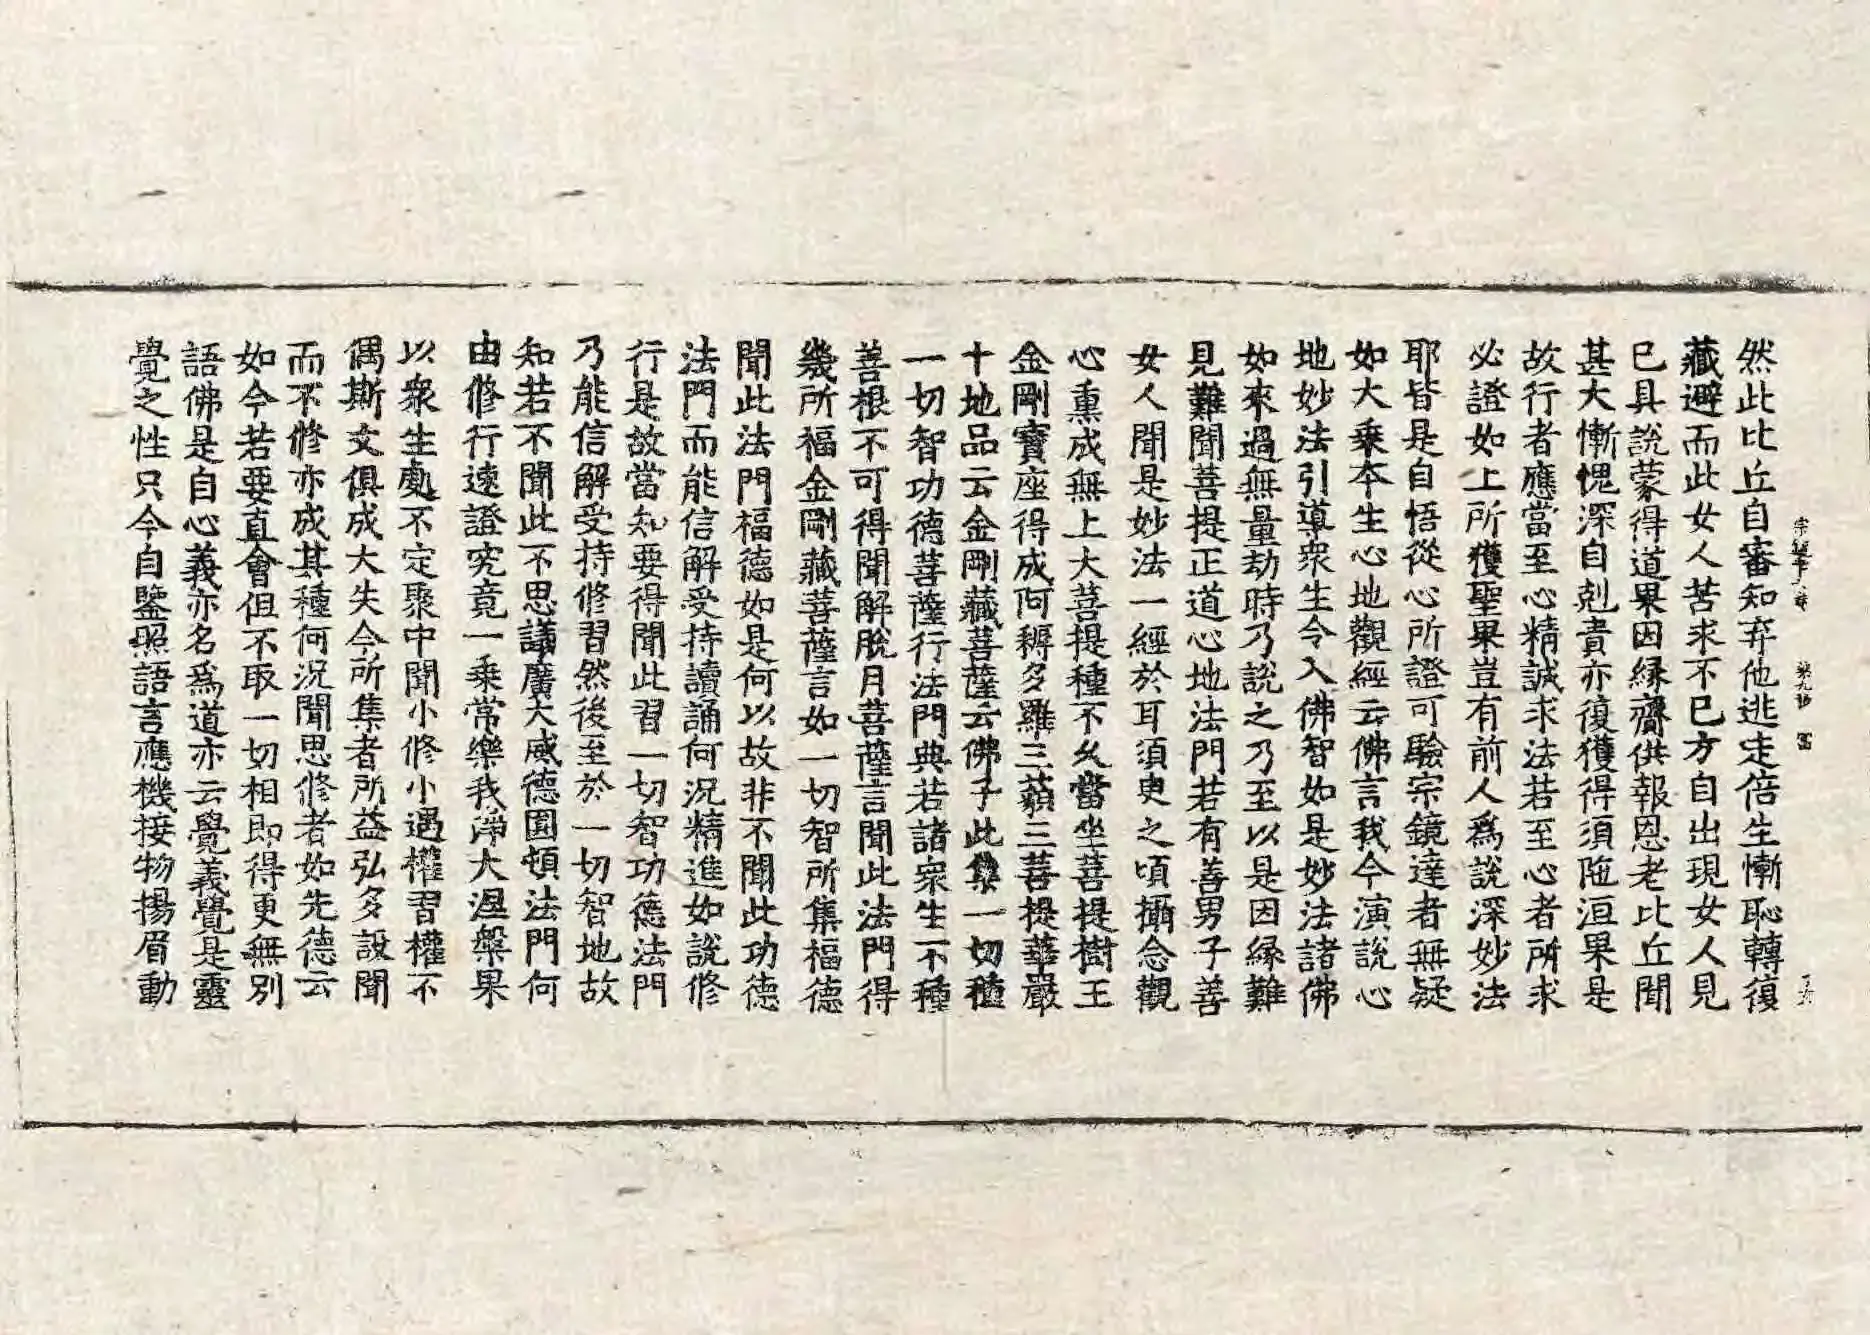 然此比丘自審知弃他逃走倍生慚恥轉復
藏避而此女人苦求不已方自出現女人見
已具說蒙得道果因縁齎供報恩老比丘聞
甚大慚愧深自剋責亦復獲得須陁洹果是
故行者應當至心精誠求法若至心者所求
必證如上所獲聖果豈有前人爲說深妙法
耶皆是自悟從心所證可驗宗鏡達者無疑
如大乗本生心地觀經云佛言我今演說心
地妙法引導衆生令入佛智如是妙法諸佛
如來過無量劫時乃說之乃至以是因縁難
見難聞菩提正道心地法門若有善男子善
女人聞是妙法一經於耳須臾之頃攝念觀
心熏成無上大菩提種不久當坐菩提樹王
金剛寶座得成阿耨多羅三藐三菩提華嚴
十地品云金剛藏菩薩云佛子此集一切種
一切智功德菩薩行法門典若諸衆生不種
善根不可得聞解脫月菩薩言聞此法門得
幾所福金剛藏菩薩言如一切智所集福德
聞此法門福德如是何以故非不聞此功德
法門而能信解受持讀誦何況精進如說修
行是故當知要得聞此習一切智功德法門
乃能信解受持修習然後至於一切智地故
知若不聞此不思議廣大威德圓頓法門何
由修行速證究竟一乗常樂我淨大涅槃果
以衆生處不定聚中聞小修小遇權習權不
偶斯文俱成大失今所集者所益弘多設聞
而不修亦成其種何況聞思修者如先德云
如今若要直會但不取一切相即得更無別
語佛是自心義亦名爲道亦云覺義覺是靈
覺之性只今自鑒照語言應機接物揚眉動